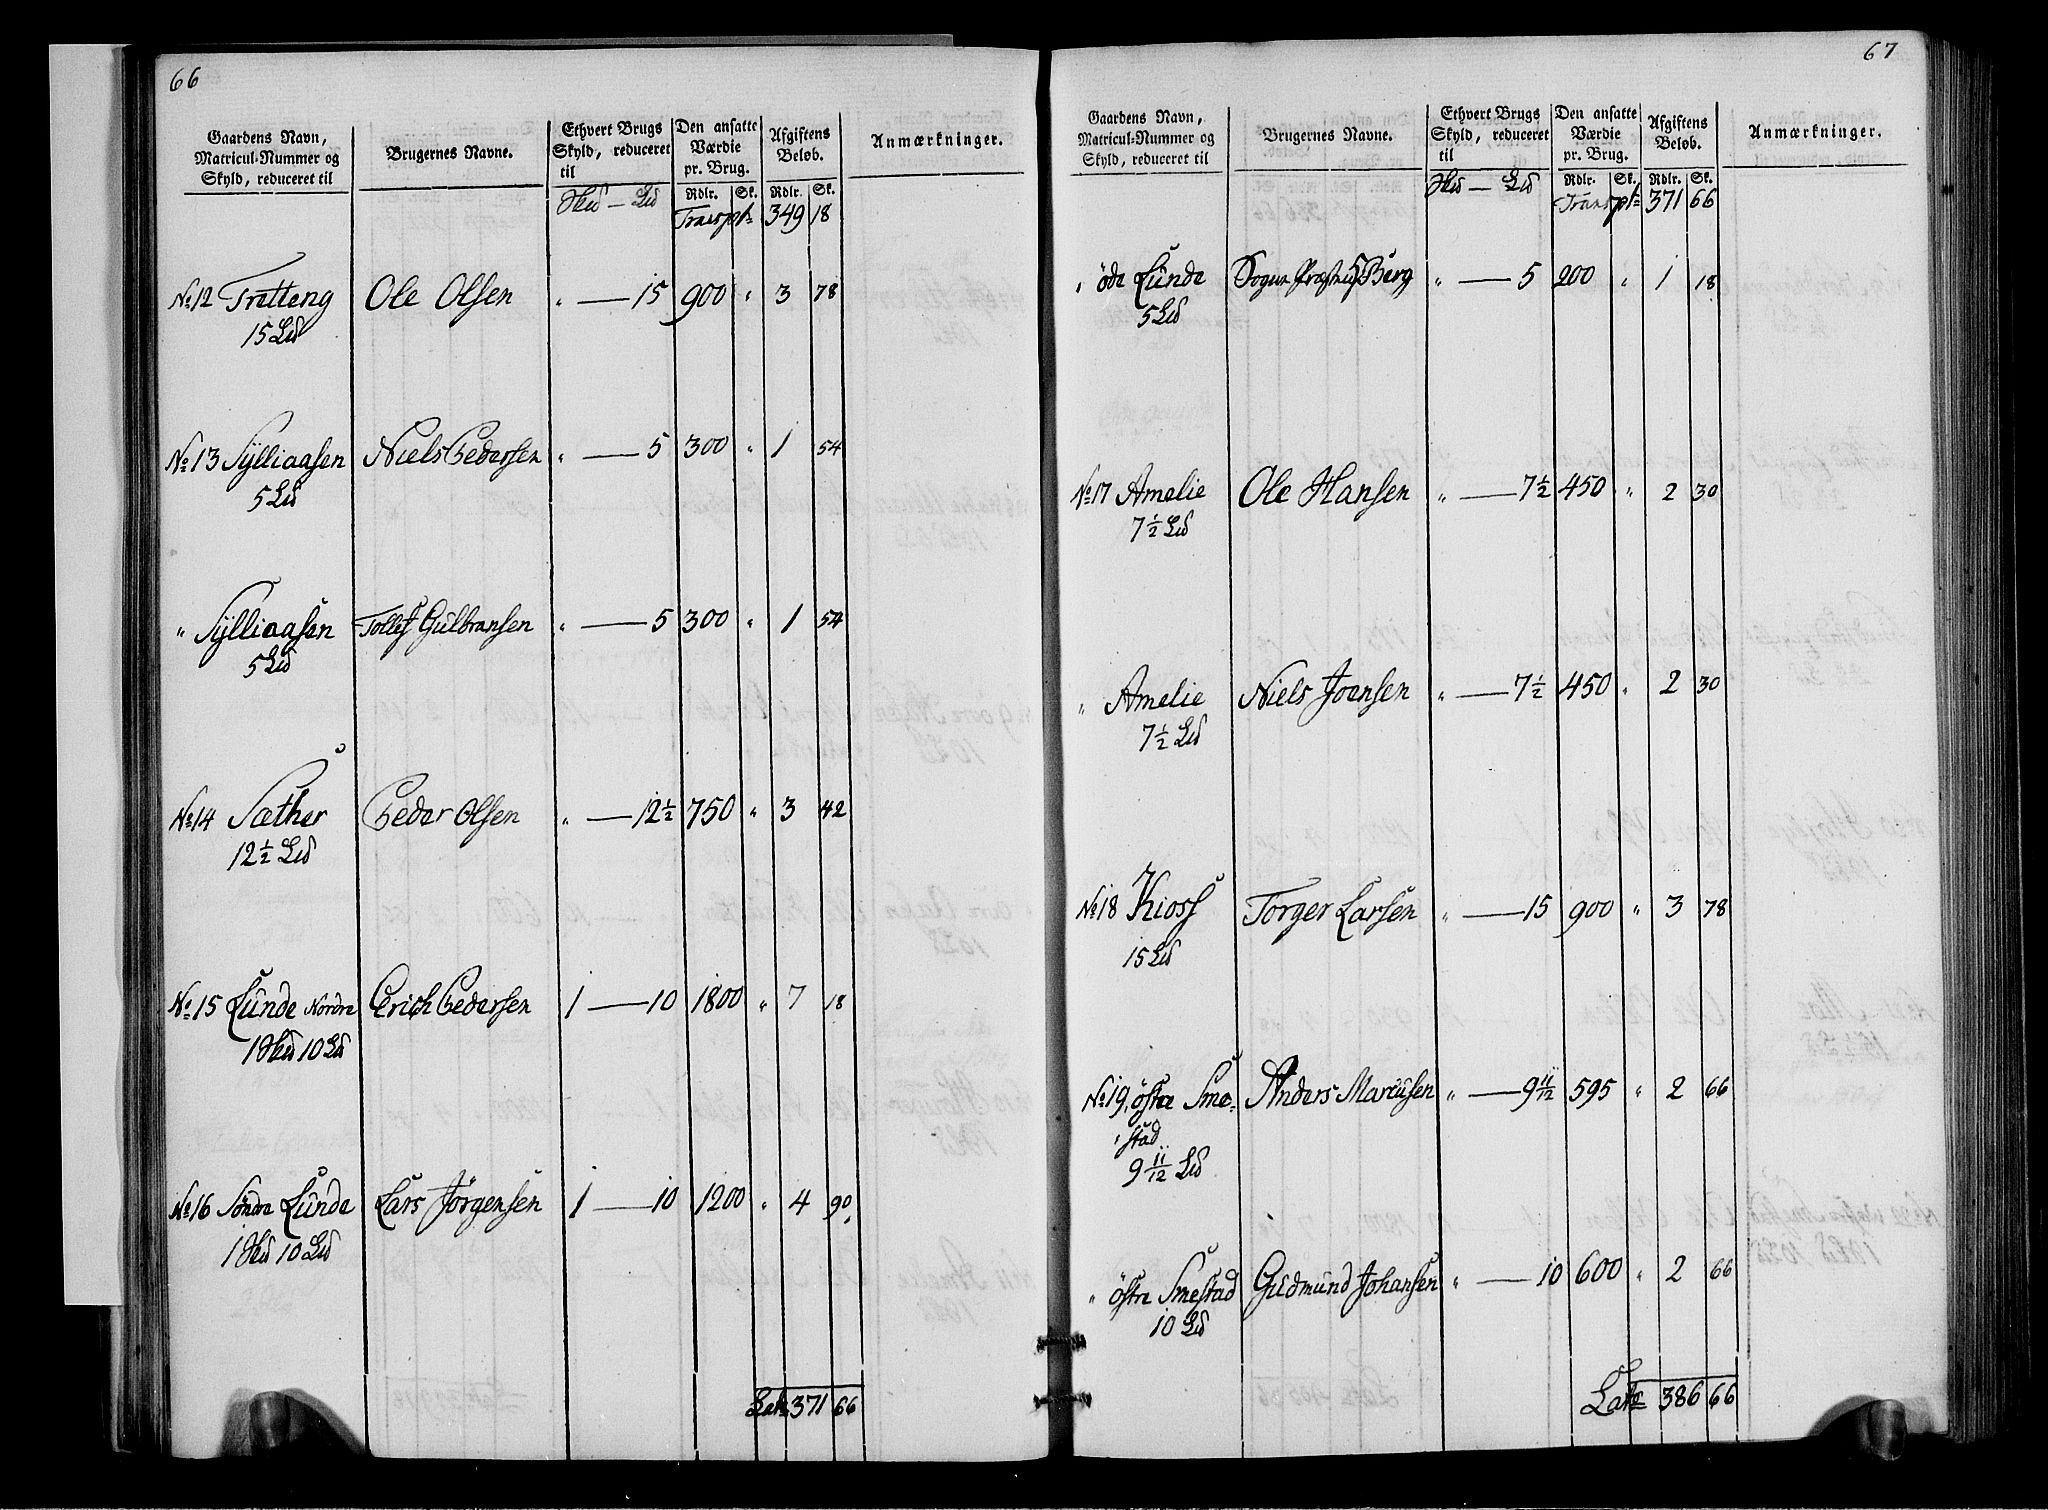 66
Gaardens Navn, Matricul-Nummer og Skyld, reduceret til
Brugernes Navne.
Ethvert Brugs Skyld, reduceret til
Den ansatte Værdie pr. Brug.
Afgiftens Beløb.
Anmærkninger.
Hud — Ld Rdlr. Sk. Rdlr. Sk.
Transpt= 349 18
No 12 Tretteng Ole Olsen " — 15 900 " 3 78
15 Ld
No 13 Sÿlliaasen Niels Pedersen " — 5 300 " 1 54
5 Ld
" Sÿlliaasen Tollef Gulbransen " — 5 300 " 1 54
5 Ld
No 14 Sæther Peder Olsen " — 12½ 750 " 3 42
12½ Ld
No 15 Lunde Nordre Erich Pedersen 1 — 10 1800 " 7 18
1 Hud 10 Ld
No 16 Søndre Lunde Lars Jørgensen 1 — 10 1200 " 4 90
1 Hud 10 Ld
Lat= 371 66
67
Gaardens Navn, Matricul-Nummer og Skyld, reduceret til
Brugernes Navne.
Ethvert Brugs Skyld, reduceret til
Den ansatte Værdie pr. Brug.
Afgiftens Beløb.
Anmærkninger.
Hud — Ld Rdlr. Sk. Rdlr. Sk.
Transpt= 371 66
" öde Lunde Berg " — 5 200 " 1 18
5 Ld
No 17 Amelie Ole Hansen " — 7½ 450 " 2 30
7½ Ld
" Amelie Niels Joensen " — 7½ 450 " 2 30
7½ Ld
No 18 Kioss Torger Larsen " — 15 900 " 3 78
15 Ld
No 19, östre Sme= Anders Marcusen " — 9 11/12 595 " 2 66
stad
9 11/12 Ld
" östre Smestad Gudmund Johansen " — 10 600 " 2 66
10 Ld
Lat= 386 66